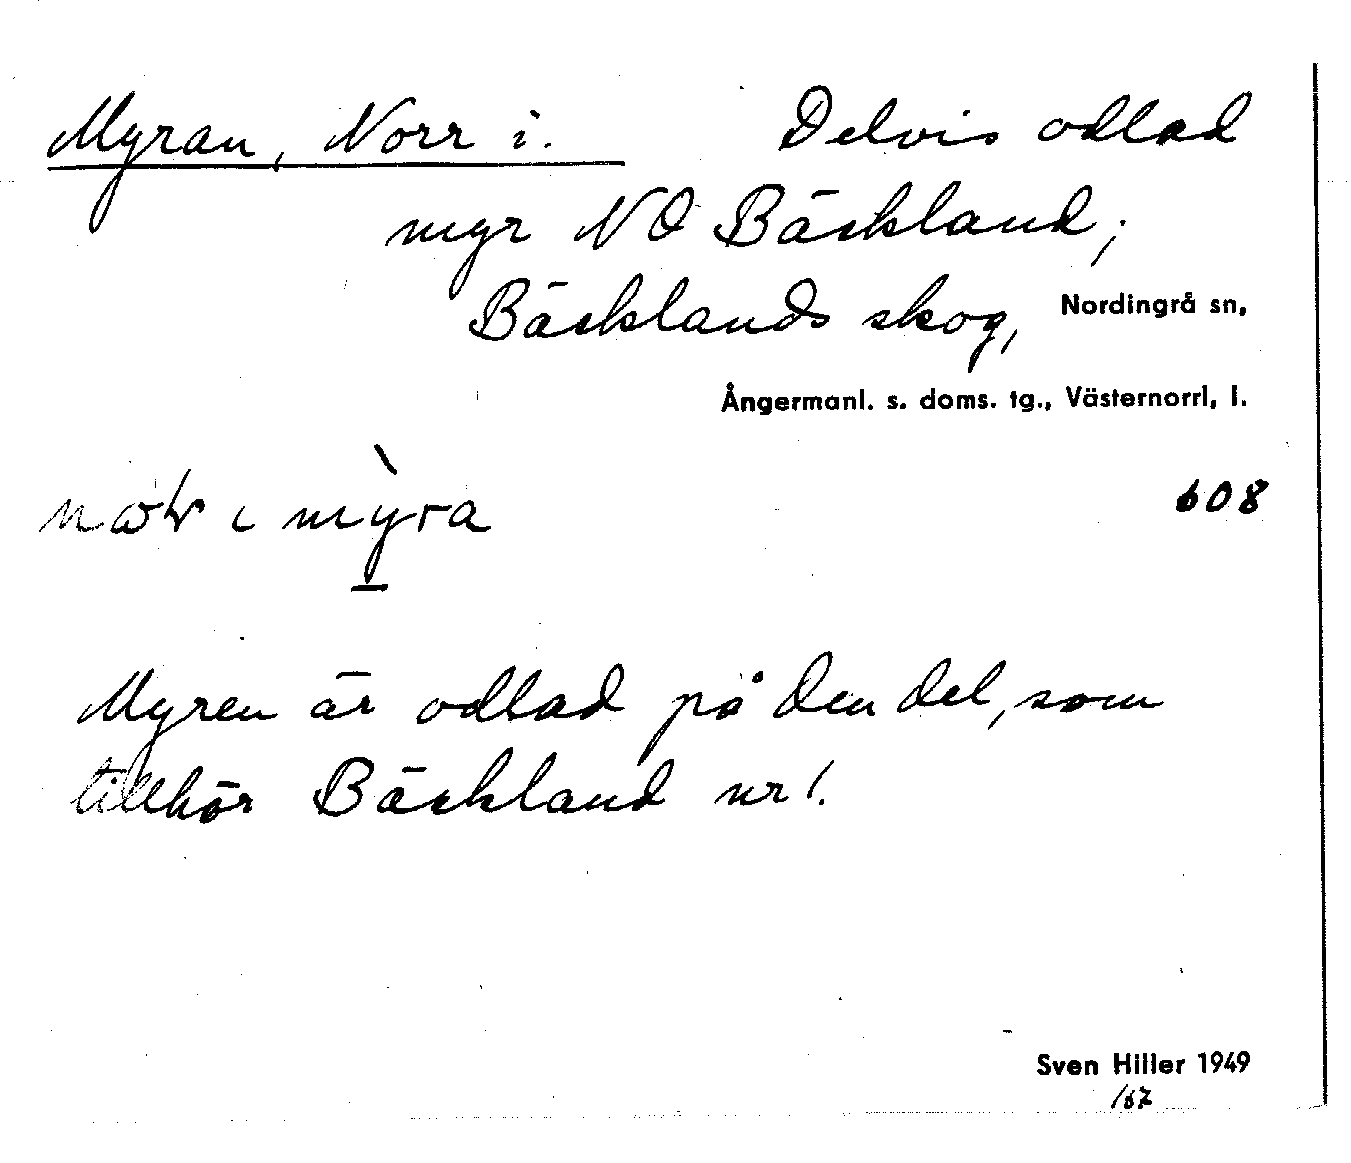 Myran, Norr i. Delvis odlad
myr NO Bäckland;
Bäcklands skog, Nordingrå sn,
Ångermanl. s. doms. tg., Västernorrl, l.
608
i mỳra
Myren är odlad på den del, som
tillhör Bäckland nr 1.
Sven Hiller 1949